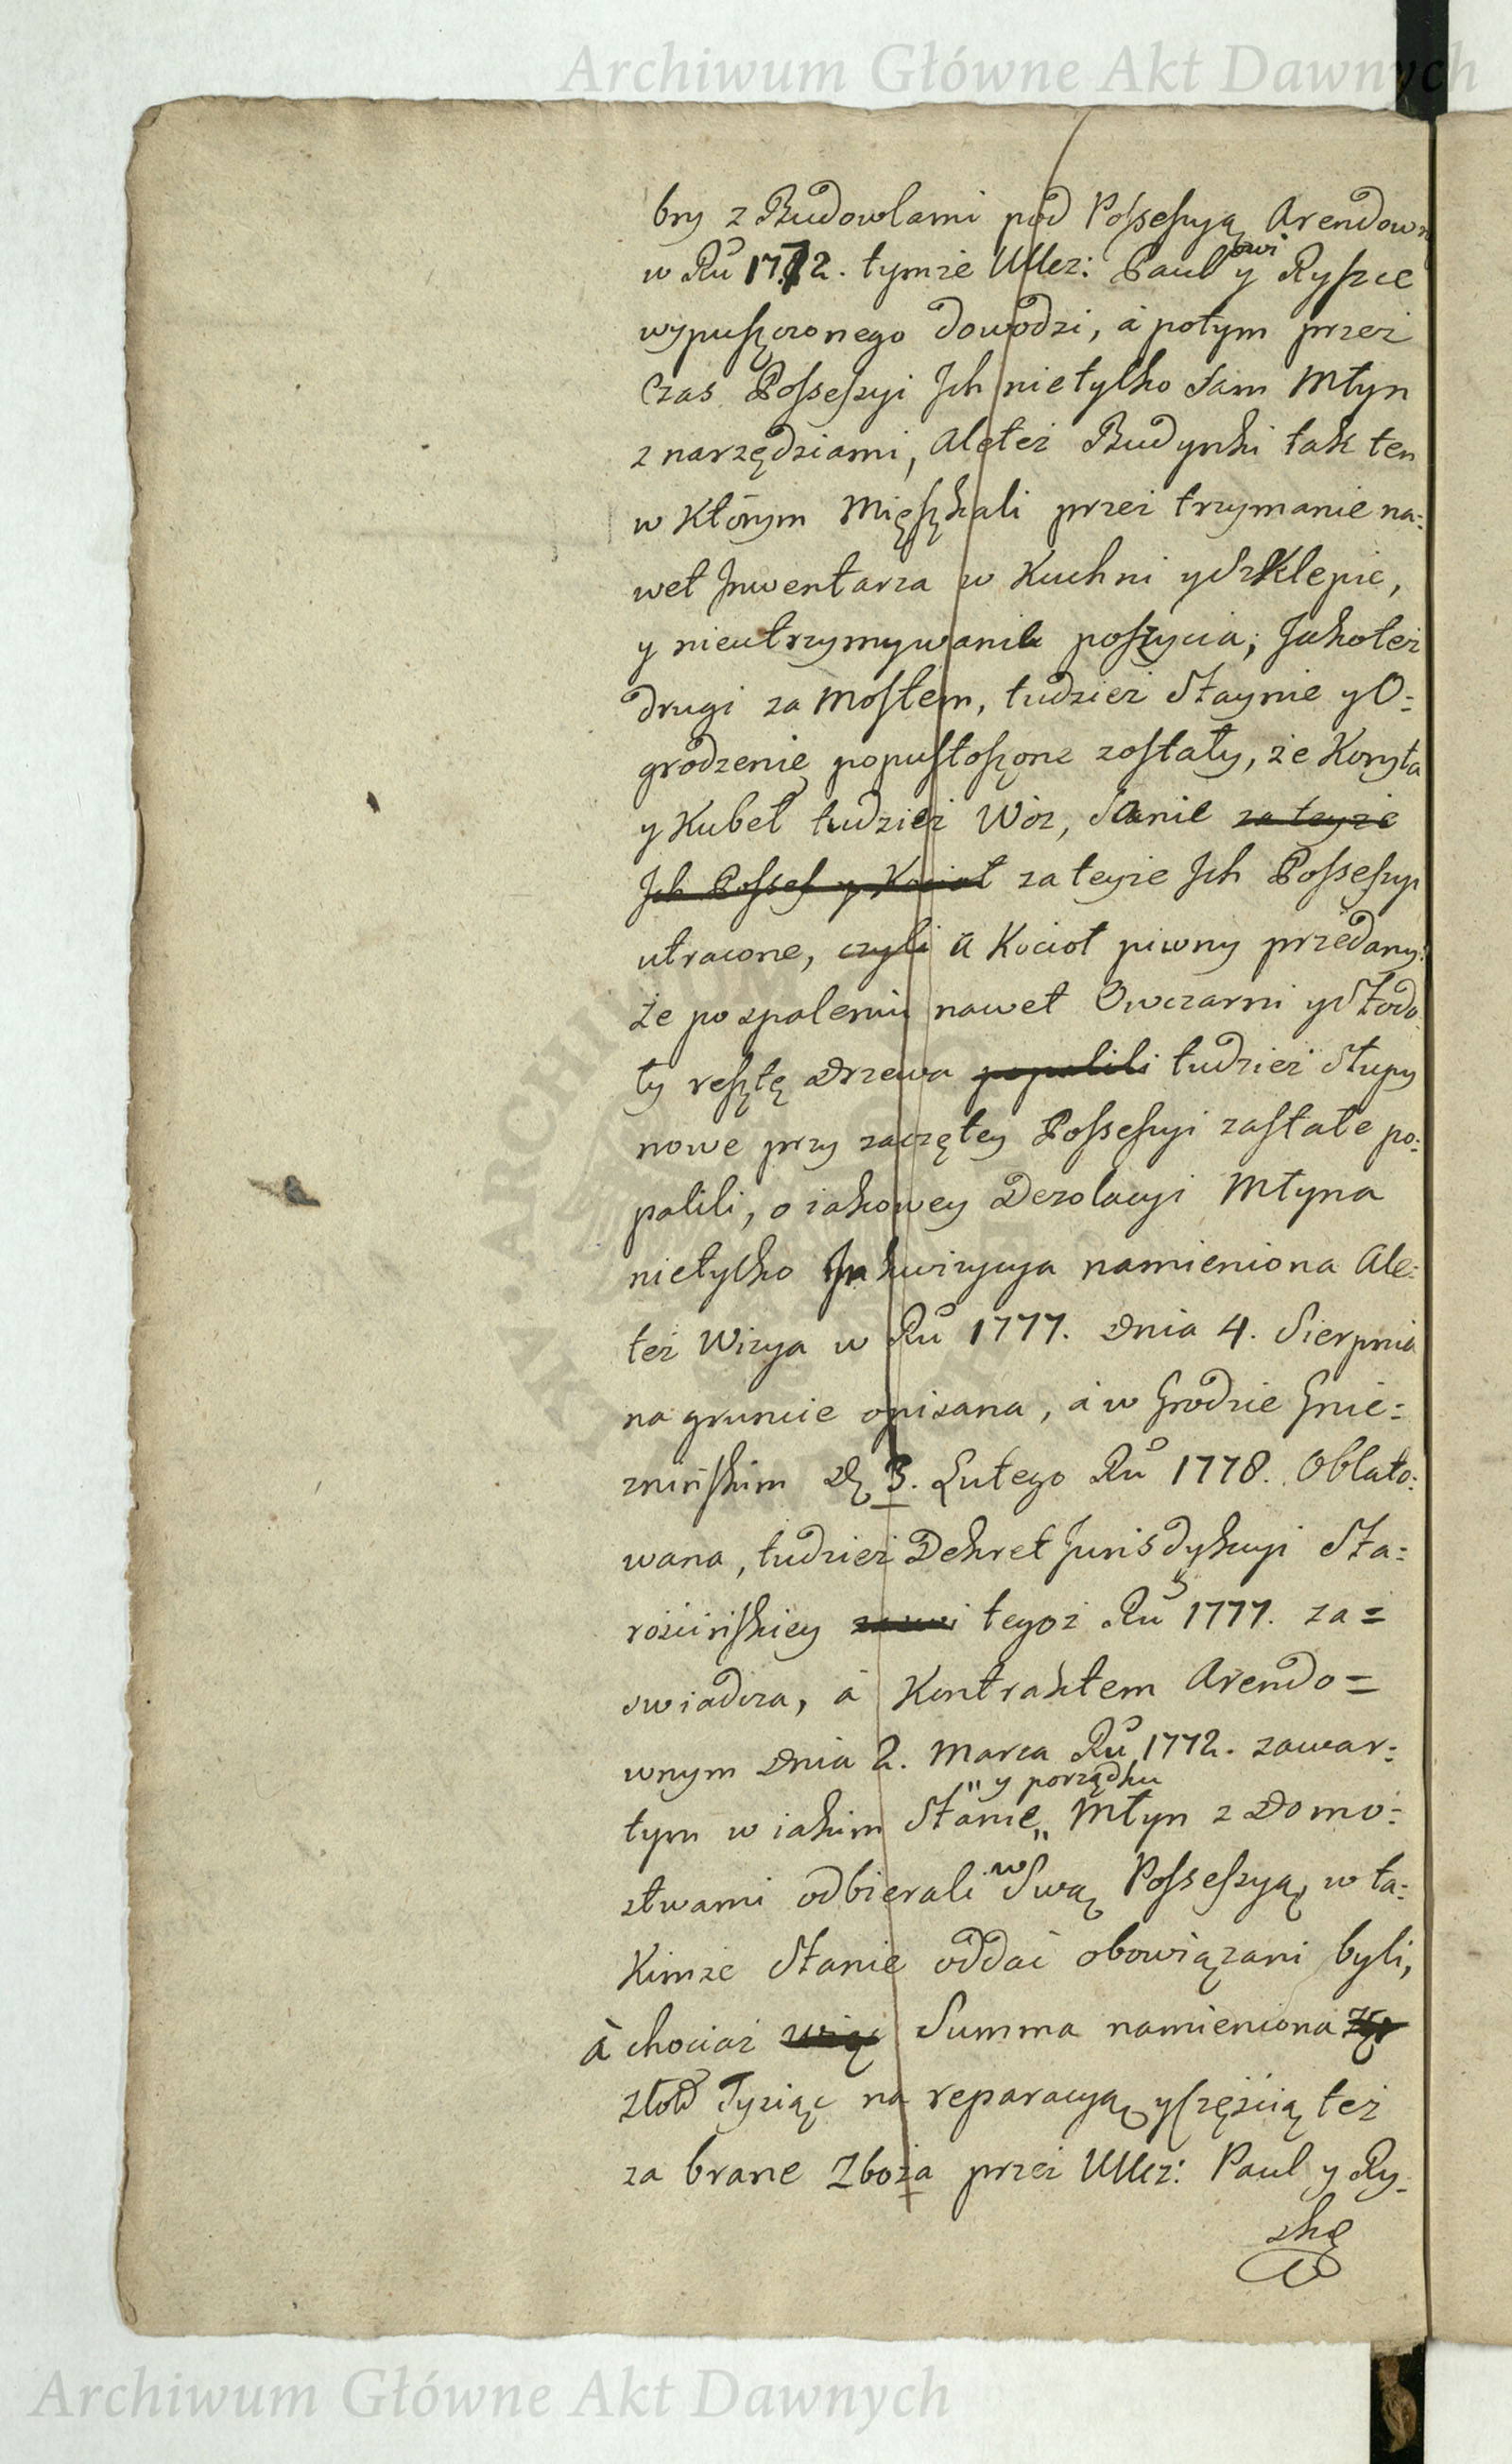 Archiwum Główne Akt Dawnych
bry z Budowlami pod Possessyą Arendown
w Ru 1772. tymze UUcz: Paulowi y Ryszce
wypuszczonego dowodzi, à potym przez
Czas Possessyi Jch nietylko sam Młyn
z narzędziami, Aleteż Budynki tak ten
w Którym Mięszkali przez trzymanie na:
wet Jnwentarza w Kuchni y Szklepie,
y nieutrzymywanie poszycia, Jakoteż
drugi za Mostem, tudzież Staynie y O:
grodzenię popustoszone zostały, że Koryta
y Kubeł tudzież Wóz, Sanie za teyze
Jch Possess y Kocioł za teyże Jch Possessyi
utracone, czyli à Kocioł piwny przedany:
że po spaleniu nawet Owczarni y Stodo:
ły resztę Drzewa popalili tudzież Stupy
nowe przy zaczętey Possessyi zastałe po:
palili, o iakowey Dezolacyi Młyna
nietylko Jnkwizycya namieniona Ale:
też Wizya w Ru 1777. Dnia 4. Sierpnia
na gruncie opisana, à w Grodzie Gnie:
znińskim D. 3. Lutego Ru 1778. Oblato:
wana, tudzież Dekret Jurisdykcyi Sta:
rościńskiey tegoż Ru 1777. za=
swiadcza, à Kontraktem Arendo=
wnym Dnia 2. Marca Ru 1772. zawar:
" y porządku
tym w iakim Stanie „ Młyn z Domo:
stwami odbierali w Swą Possessyą, w ta:
Kimże Stanie oddać obowiązani byli,
à chociaż więc Summa namieniona
złotd Tysiąc na reparacyą y częścią też
za brane Zboża przez UUcz: Paul y Ry:
szkę
Archiwum Główne Akt Dawnych